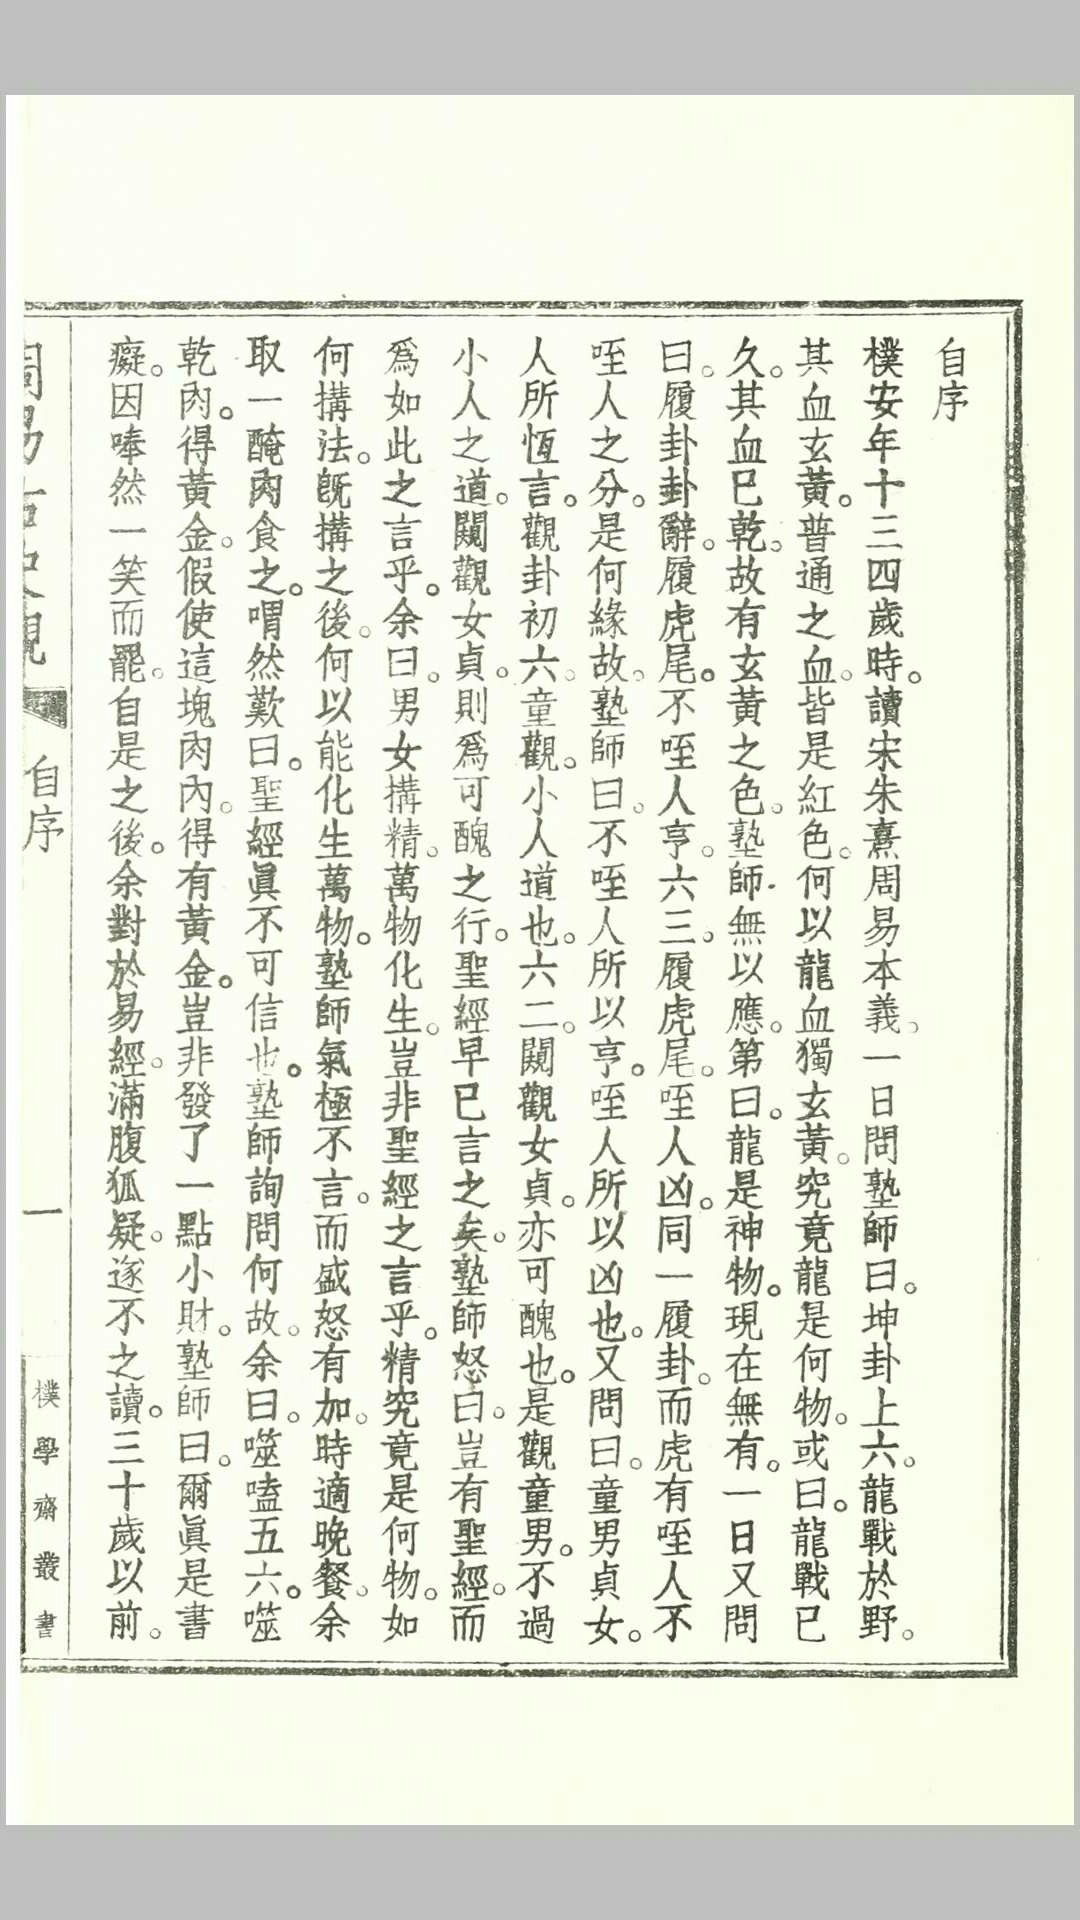 自序
樸安年十三四歲時。讀宋朱熹周易本義。一日問塾師曰。坤卦上六。龍戰於野。
其血玄黃。普通之血。皆是紅色。何以龍血獨玄黃。究竟龍是何物。或曰。龍戰已
久。其血已乾。故有玄黃之色。塾師無以應。第曰。龍是神物。現在無有。一日又問
曰。履卦卦辭。履虎尾。不咥人亨。六三。履虎尾。咥人凶。同一履卦。而虎有咥人不
咥人之分。是何緣故。塾師曰。不咥人所以亨。咥人所以凶也。又問曰。童男貞女。
人所恆言。觀卦初六。童觀。小人道也。六二。闚觀女貞。亦可醜也。是觀童男。不過
小人之道。闚觀女貞。則爲可醜之行。聖經早已言之矣。塾師怒曰。豈有聖經。而
爲如此之言乎。余曰。男女搆精。萬物化生。豈非聖經之言乎。精究竟是何物。如
何搆法。旣搆之後。何以能化生萬物。塾師氣極不言。而盛怒有加。時適晚餐。余
取一醃肉食之。喟然歎曰。聖經眞不可信也。塾師詢問何故。余曰。噬嗑五六。噬
乾肉。得黃金。假使這塊肉內。得有黃金。豈非發了一點小財。塾師曰。爾眞是書
癡。因唪然一笑而罷。自是之後。余對於易經。滿腹狐疑。遂不之讀。三十歲以前。
周易古史觀
自序
一
樸學齋叢書